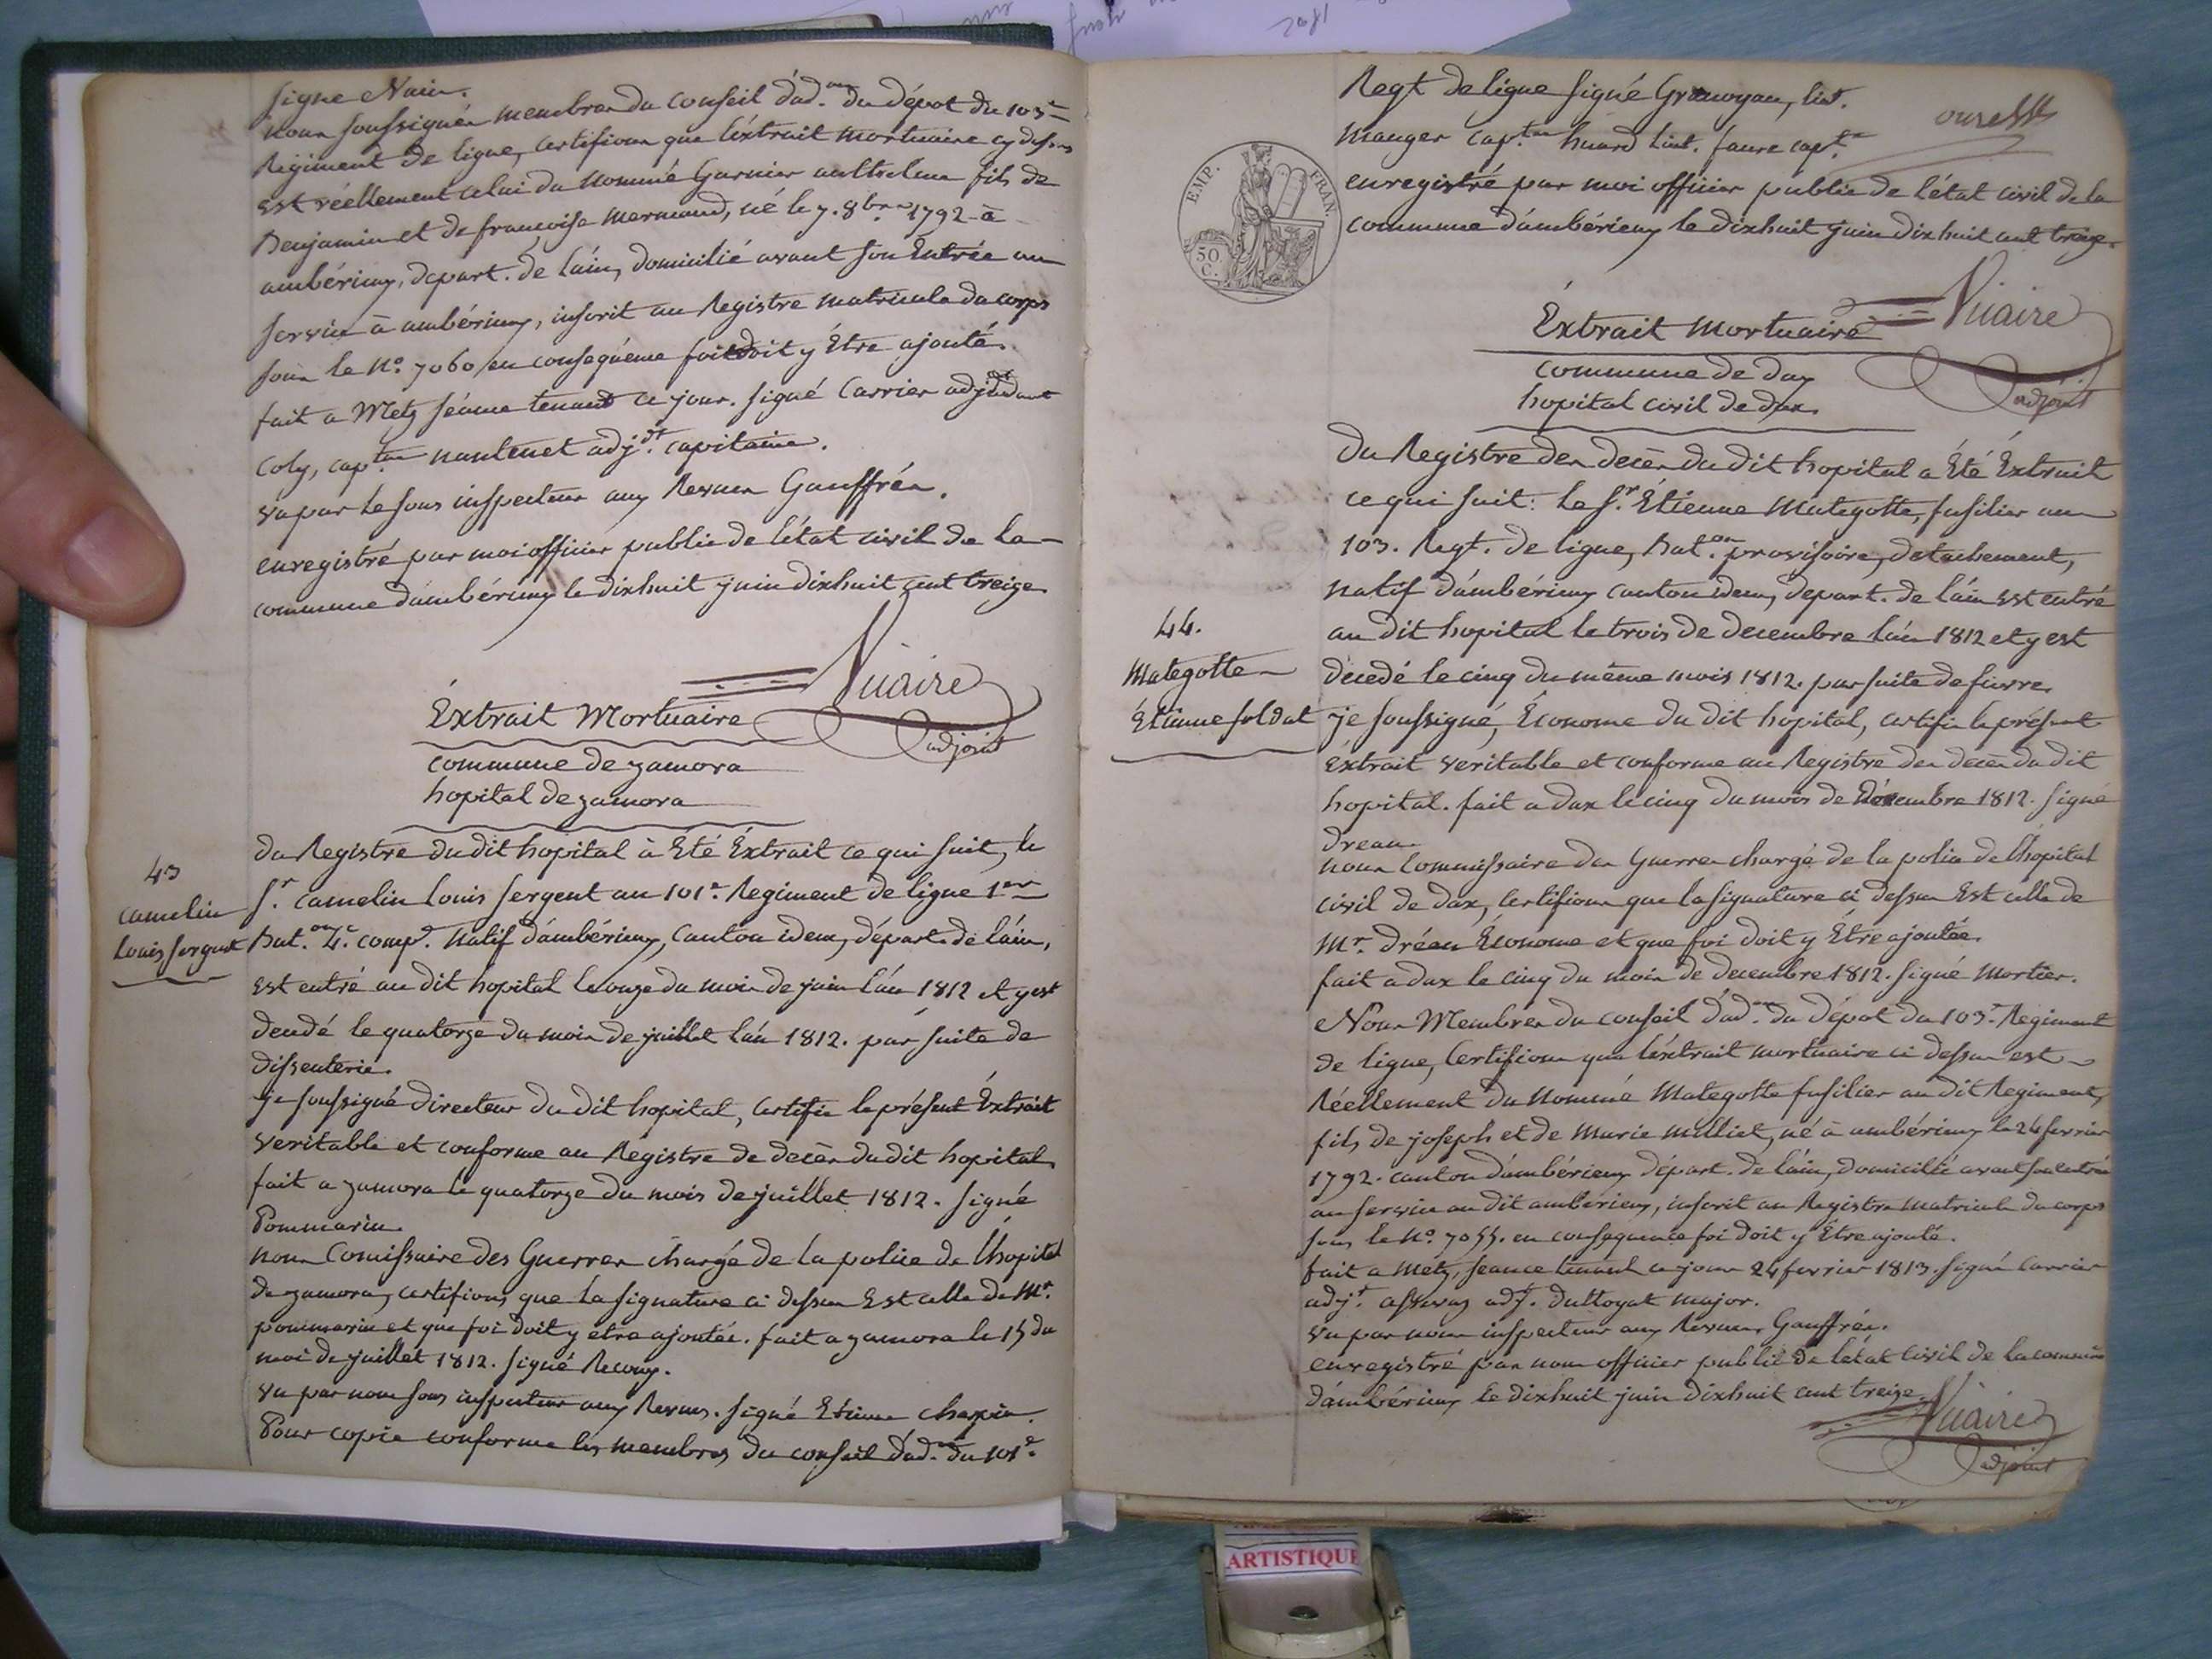 signé Nain.
nous soussignés membres du conseil d'ad.on du dépot du 103e
Régiment de ligne, certifions que l'extrait mortuaire cy dessus
est réellement celui du nommé Garnier fils de
Benjamin et de françoise Mermand, né le 7. 8bre 1792 à
ambérieux, depart. de l'ain, domicilié avant son Entrée au
service à ambérieux, inscrit au Registre matricule du corps
sous le N.o 7060 en conséquence foi doit y Être ajouté.
fait a Metz séance tenant ce jour. signé Carrier adjudant
Coly, cap.ne nantenet adj.dt capitaine.
vu par le sous inspecteur aux Revues Gauffrés.
enregistré par moi officier public de l'état civil de la
commune d'ambérieux le dixhuit juin dixhuit cent treize
Vuaire
adjoint
Éxtrait Mortuaire
commune de zamora
hopital de zamora
43
camelin
Louis, sergent
du Registre du dit hopital à Été Éxtrait ce qui suit, le
S.r camelin Louis sergent au 101e Regiment de ligne 1er
Bat.on 4.e comp.e natif d'ambérieux, canton idem, départ. de l'ain,
est entré au dit hopital le onze du mois de juin l'an 1812 et y est
décédé le quatorze du mois de juillet l'an 1812. par suite de
dissenterie.
je soussigné directeur du dit hopital, certifie le présent Éxtrait
veritable et conforme au Régistre de décès du dit hopital
fait a zamora le quatorze du mois de juillet 1812. signé
Pommarin.
nous Comissaire des Guerres chargé de la police de l'hopital
de zamora, certifions que la signature ci dessus Est celle de Mr.
pommarin et que foi doit y etre ajoutée. fait a zamora le 15 du
moi de juillet 1812. signé Recouy.
vu par nous sous inspecteur aux Revues. signé Etienne chapin.
Pour copie conforme les membres du conseil d'ad.on du 101e
Regt de ligne signé
manger cap.ne huard Lieut. faure capt.
enregistré par moi officier public de l'état civil de la
commune d'ambérieux le dixhuit juin dix huit cent treize.
EMP. FRAN.
50
C.
Vuaire
adjoint
Éxtrait Mortuaire
commune de dax
hopital civil de dax.
du Registre des décès du dit hopital a Été Éxtrait
ce qui suit: Le S.r Étienne Mategotte, fusilier au
103. Regt. de ligne, Bat.on provisoire, detachement,
natif d'ambérieux canton idem, depart. de l'ain est entré
au dit hopital le trois de decembre l'an 1812 et y est
décedé le cinq du même mois 1812. par suite de fievre.
44.
Mategotte
Étienne soldat
je soussigné, Économe du dit hopital, certifie le présent
Éxtrait veritable et conforme au Registre des décès du dit
hopital. fait a dax le cinq du mois de Décembre 1812. signé
Dreau.
nous Commissaire des Guerres chargé de la police de l'hopital
civil de dax, certifions que la signature ci dessus Est celle de
Mr. dréau Économe et que foi doit y Être ajoutée.
fait a dax le cinq du mois de decembre 1812. signé Mortier.
Nous Membres du conseil d'ad.on du dépot du 103e Regiment
de ligne, Certifions que l'éxtrait mortuaire ci dessus est
Réellement du nommé Mategotte fusilier au dit Regiment,
fils de joseph et de Marie Milliet, né à ambérieux le 24 fevrier
1792. canton d'ambérieux départ. de l'ain, domicilié avant son entrée
au service au dit ambérieux, inscrit au Registre matricule du corps
sous le N.o 7055. en consequence foi doit y Etre ajouté.
fait a Metz, séance tenant ce jour 24 fevrier 1813. signé Carrier
adj.t adj.t duttoyat major.
vu par nous inspecteur aux Revues, Gauffrés.
enregistré par nous officier public de l'état civil de la commune
d'ambérieux le dixhuit juin dixhuit cent treize.
Vuaire
adjoint
ARTISTIQUE